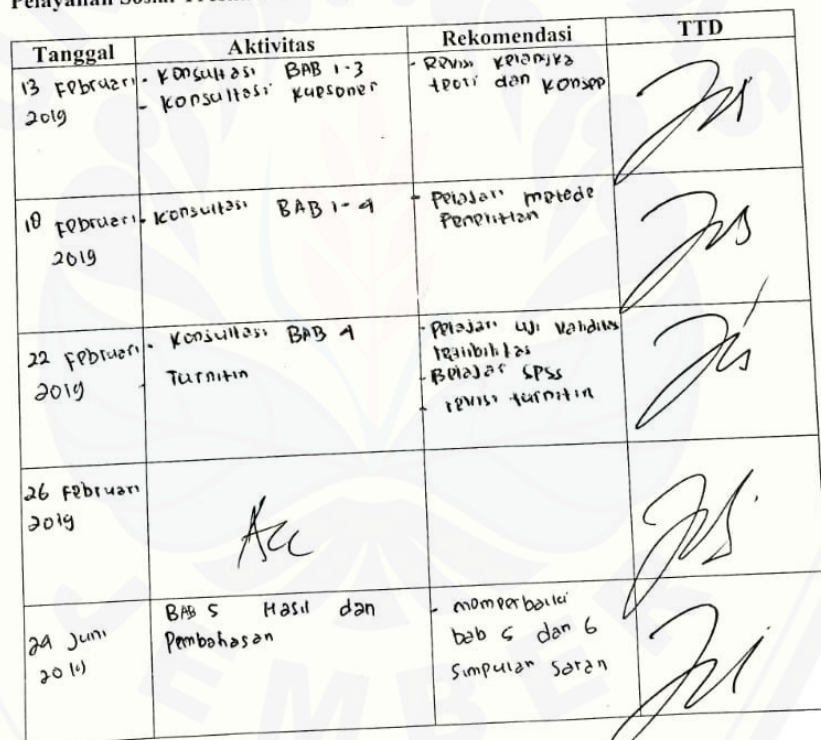 Pelayanan Sosial
Tanggal Aktivitas Rekomendasi TTD
13 Februari 2019
- Konsultasi BAB 1-3
- Konsultasi Kuesoner
- Revisi kerangka
teori dan konsep
18 Februari 2019
- Konsultasi BAB 1-4
- Pelajari metode
Penelitian
22 Februari 2019
- Konsultasi BAB 4
- Turnitin
- Pelajari uji Validitas
realibilitas
- Belajar SPSS
- revisi turnitin
26 Februari 2019
Acc
24 Juni
2019
BAB 5 Hasil dan
Pembahasan
- memperbaiki
bab 5 dan 6
Simpulan Saran
JEMBER